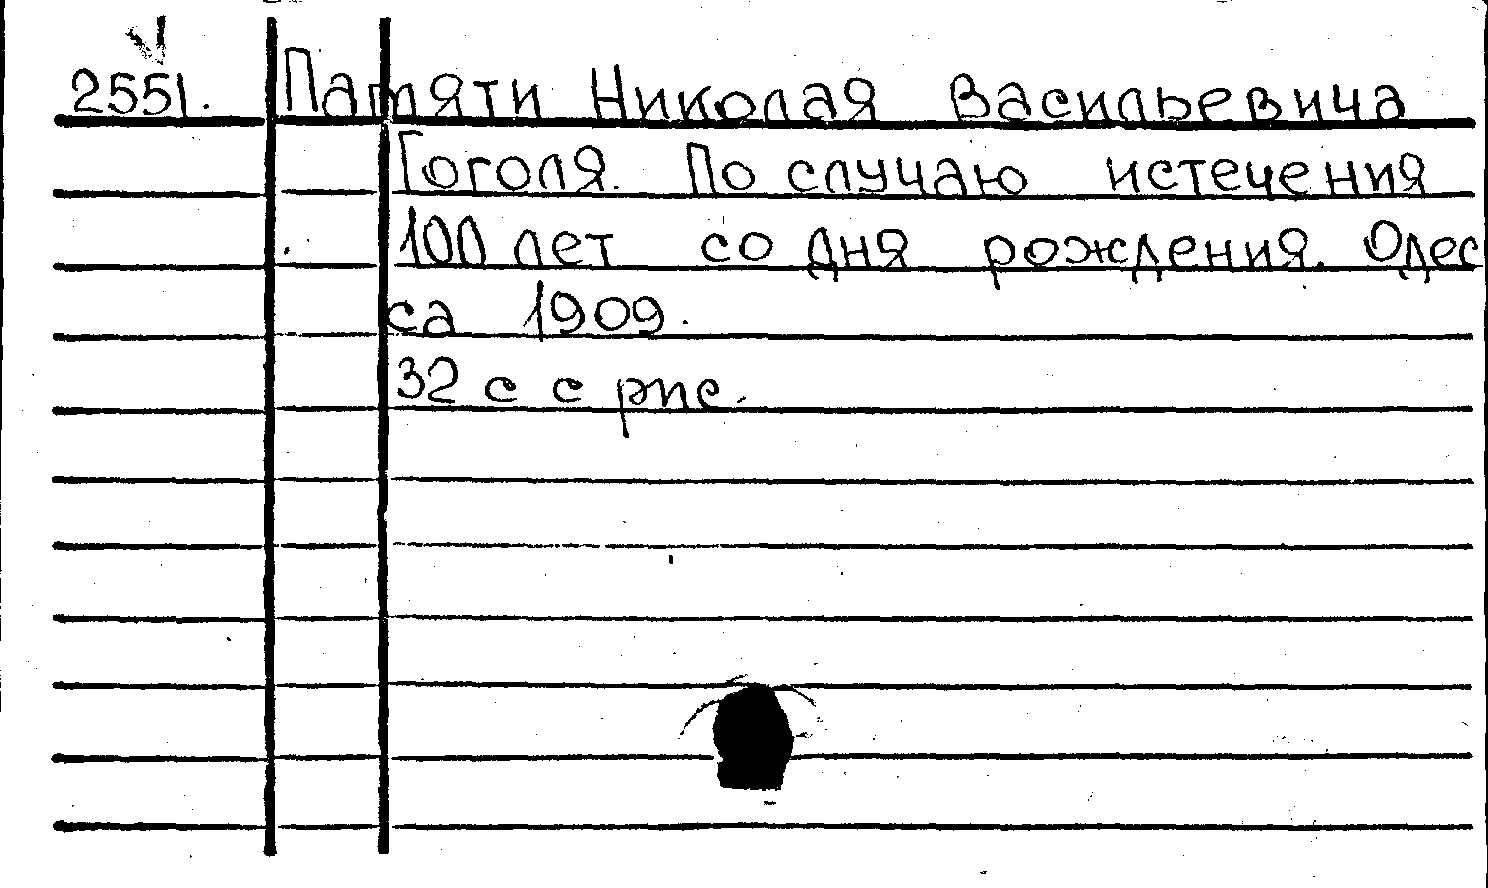 2551. Памяти Николая Васильевича
Гоголя. По случаю истечения
100 лет со дня рождения. Одес
са 1909.
32 с с рис.